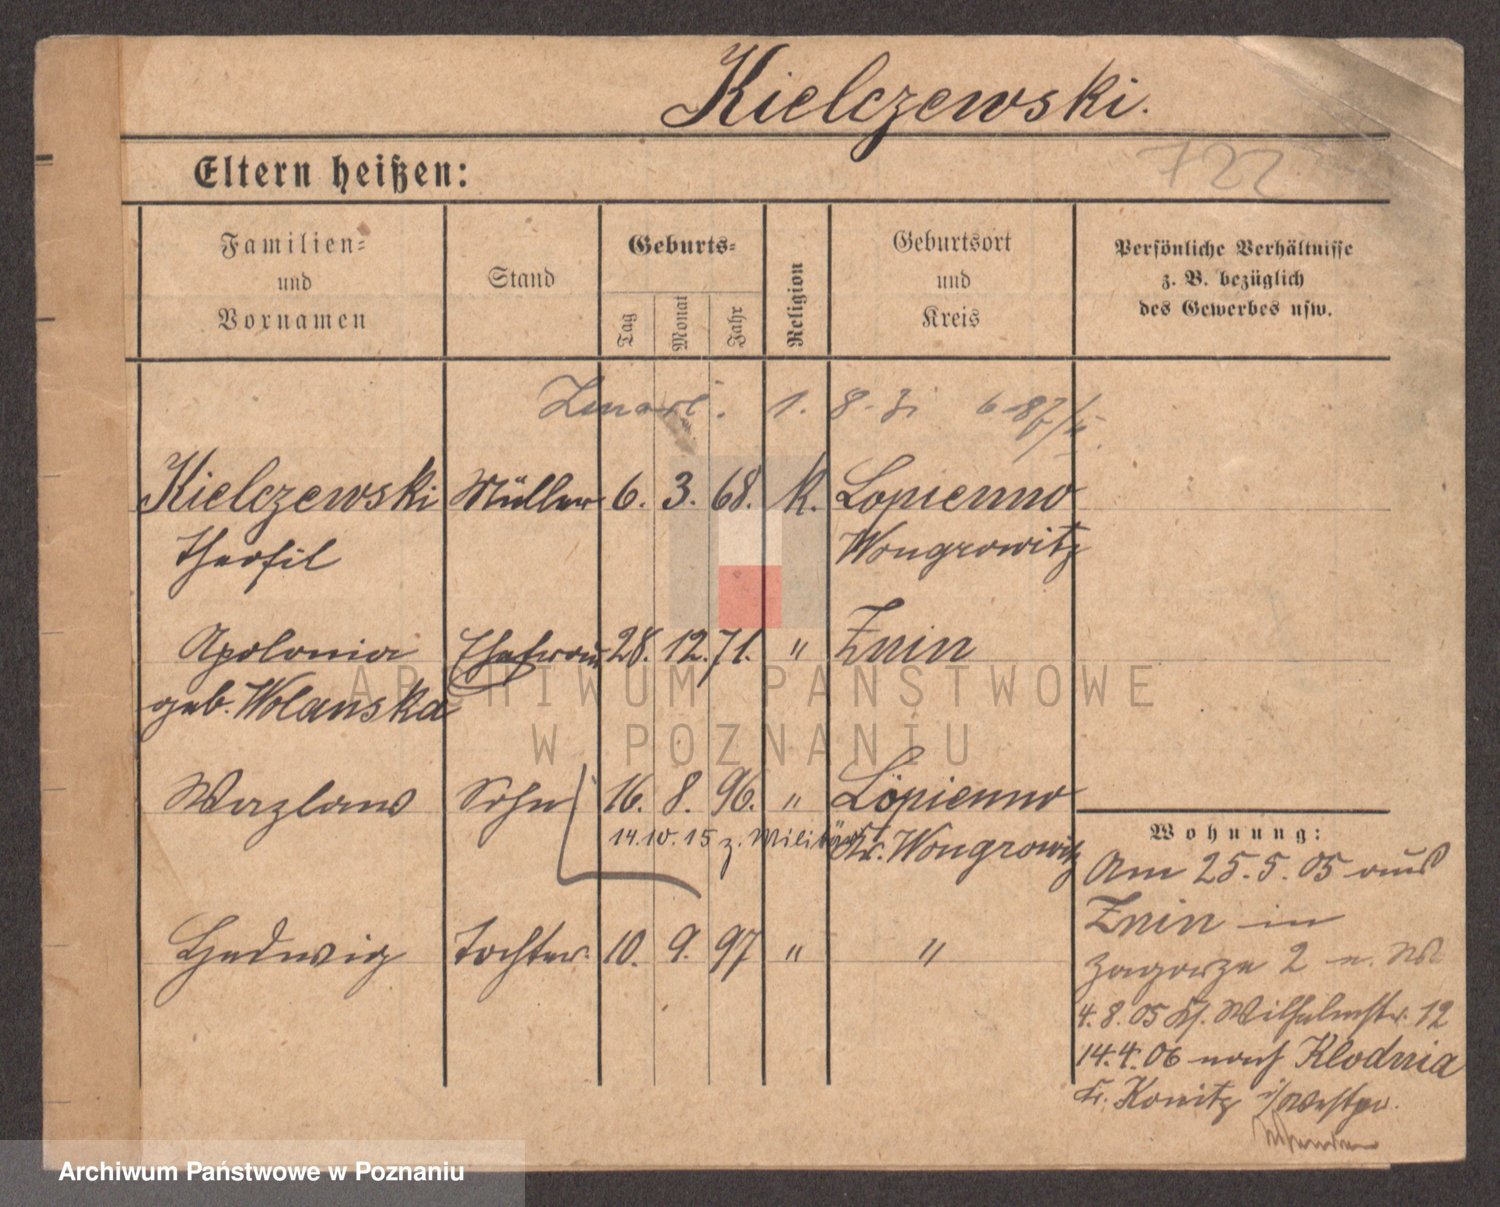 Kielczewski.
722
Eltern heißen:
Familien-
und
Vornamen
Stand
Geburts-
Tag
Monat
Jahr
Religion
Geburtsort
und
Kreis
Persönliche Verhältnisse
z. B. bezüglich
des Gewerbes usw.
Zmarł. 1. 8. 31
Kielczewski Müller 6. 3. 68. k. Lopienno
Theofil Wongrowitz
Apolonia Ehefrau 28. 12. 71. " Znin
geb. Wolanska
Wazlaw Sohn 16. 8. 96. " Lopienno
14.10.15 z. Militär Kr. Wongrowitz
Hedwig Tochter. 10. 9. 97 " "
Wohnung:
Am 25.5.05 aus
Znin in
Zagorze 2
4.8.05 Wilhelmstr. 12
14.4.06 nach Klodnia
Kr. Konitz i/Westpr.
ARCHIWUM PAŃSTWOWE
W POZNANIU
Archiwum Państwowe w Poznaniu